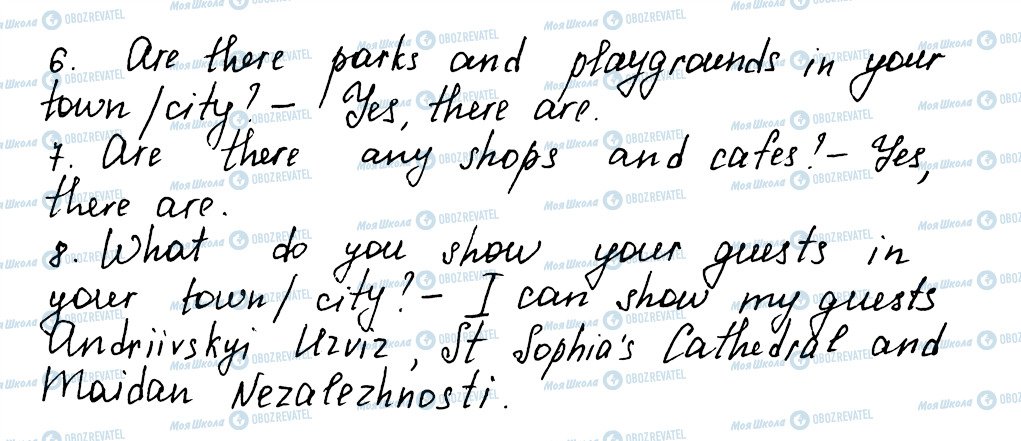 6. Are there parks and playgrounds in your
town/city? – Yes, there are.
7. Are there any shops and cafes? – Yes,
there are.
8. What do you show your guests in
your town/city? – I can show my guests
Andriivskyi Uzviz, St Sophia's Cathedral and
Maidan Nezalezhnosti.